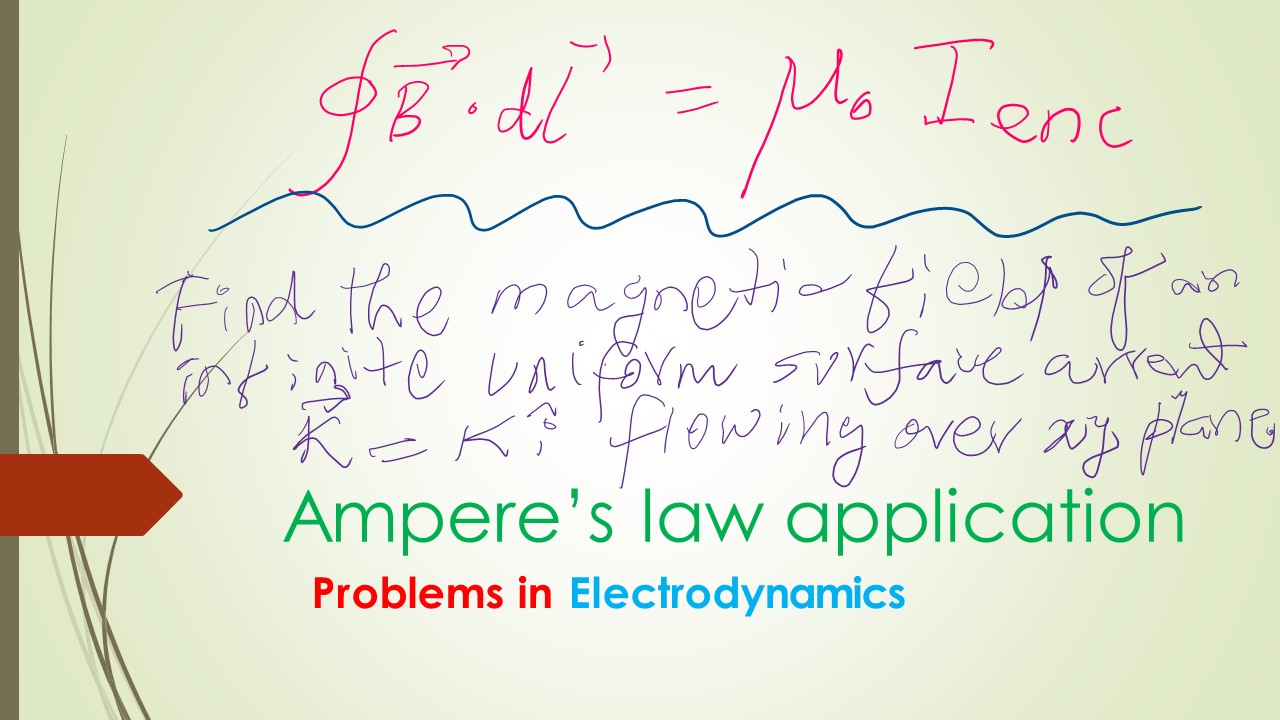 ∮B⃗ · dl⃗ = μ₀ I enc
Find the magnetic field of an
infinite uniform surface current
K⃗ = K î flowing over xy plane
Ampere’s law application
Problems in Electrodynamics